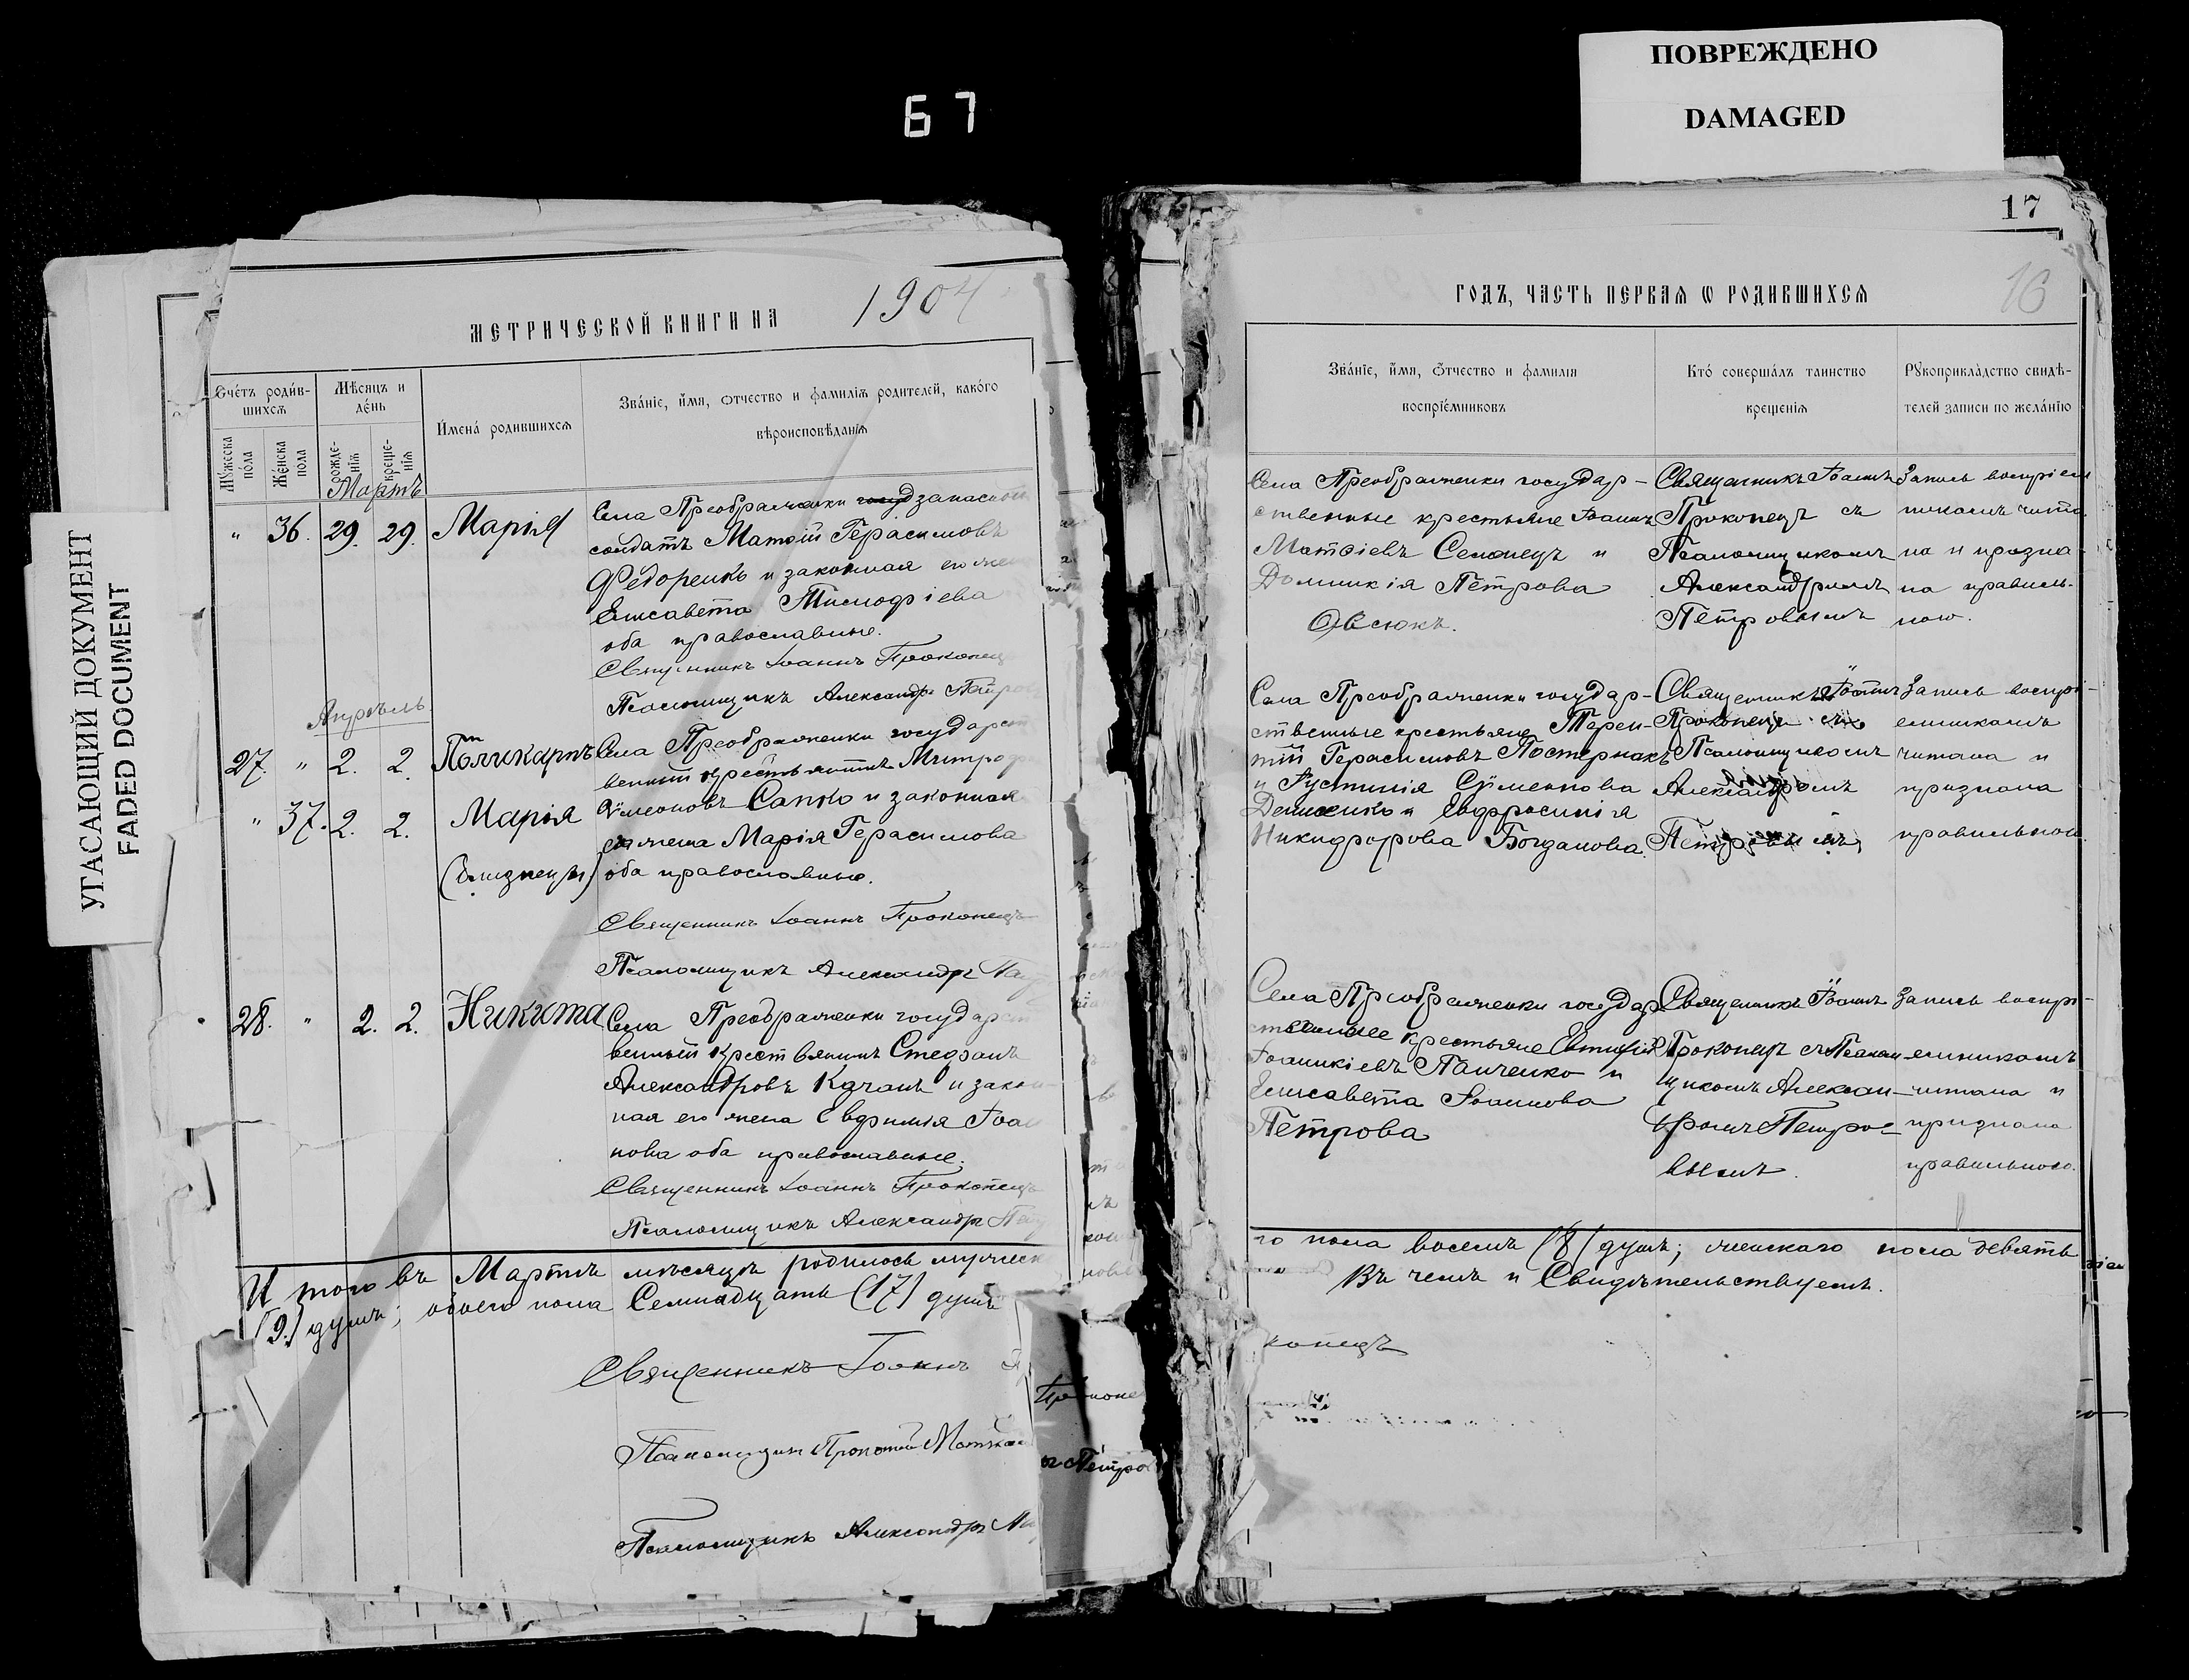 ПОВРЕЖДЕНО
DAMAGED
67
УГАСАЮЩИЙ ДОКУМЕНТ
FADED DOCUMENT
МЕТРИЧЕСКОЙ КНИГИ НА 1904
Счéтъ родúв-
шихсѧ
Мѣсяцъ и
дéнь
Мужеска
пóла
Жéнска
пола
рожде-
нїѧ
креще-
нїѧ
Именá родившихсѧ
Звáнїе, имя, ѻтчество и фамилїѧ родителей, какóго
вѣроисповѣданїѧ
Мартъ
" 36. 29. 29. Марія
Села Преображенки запасный
солдатъ Матөій Герасимовъ
Федоренко и законная его жен
Елисавета Тимофіева
оба православные.
Священникъ Іоаннъ Прокопец
Псаломщикъ Александръ Петров
Апрѣль
27. " 2. 2. Поликарпъ
Села Преображенки государст
венный крестьянинъ Митроф
" 37. 2. 2. Марія
(близнецы)
Сѵмеоновъ Сапко и законная
его жена Марія Герасимова
оба православные.
Священникъ Іоаннъ Прокопецъ
Псаломщикъ Александръ Пет
28. " 2. 2. Никита
Села Преображенки государст
венный крестьянинъ Стефанъ
Александровъ Качанъ и закон-
ная его жена Евфимія Іоан
нова оба православные.
Священникъ Іоаннъ Прокопецъ
Псаломщикъ Александръ Пет
И того въ Мартѣ мѣсяцѣ родилось мужеск
(9.) душъ; обоего пола Семнадцать (17) душъ
Священникъ Іоаннъ П
Прокопе
Александръ Пе
ъ Петров
17
16
ГОДЪ, ЧАСТЬ ПЕРВАѦ Ѡ РОДИВШИХСѦ
Звáнїе, имя, ѻтчество и фамилїя
воспрїéмниковъ
Ктó совершáлъ таинство
крещенїѧ
Рукоприклáдство свидѣ-
телей записи по желáнїю
Села Преображенки государ-
ственные крестьяне Іоаннъ
Матөіевъ Семенецъ и
Домникія Петрова
Овсюкъ.
Священникъ Іоаннъ
Прокопецъ съ
Псаломщикомъ
Александромъ
Петровымъ
Запись воспріем
никомъ чита
на и призна
на правиль-
ною.
Села Преображенки государ-
ственные крестьяне Терен-
тій Герасимовъ Постернакъ
и Іустинія Сѵмеонова
Денисенко и Евфросинія
Никифорова Богданова.
Священникъ Іоаннъ
Прокопецъ съ
Псаломщикомъ
Александромъ
Петровымъ
Запись воспрі-
емникамъ
читана и
признана
правильною
Села Преображенки государ
ственные крестьяне Евтихій
Іоанникіевъ Панченко и
Елисавета Іоаннова
Петрова
Священникъ Іоаннъ
Прокопецъ съ Псалом-
щикомъ Алексан-
дромъ Петро-
вымъ.
Запись воспрі-
емникамъ
читана и
признана
правильною.
го пола восемь (8) душъ; женскаго пола девять
Въ чемъ и Свидѣтельствуемъ.
копецъ